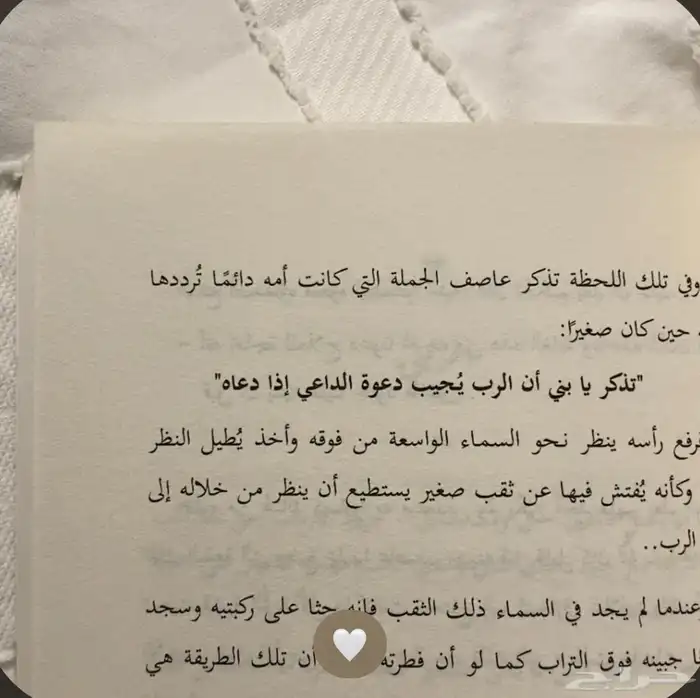 وفي تلك اللحظة تذكر عاصف الجملة التي كانت أمه دائمًا تُرددها
حين كان صغيرًا:
"تذكر يا بني أن الرب يُجيب دعوة الداعي إذا دعاه"
فرفع رأسه ينظر نحو السماء الواسعة من فوقه وأخذ يُطيل النظر
وكأنه يُفتش فيها عن ثقب صغير يستطيع أن ينظر من خلاله إلى
الرب..
عندما لم يجد في السماء ذلك الثقب فإنه جثا على ركبتيه وسجد
جبينه فوق التراب كما لو أن فطرته أن تلك الطريقة هي
حراج